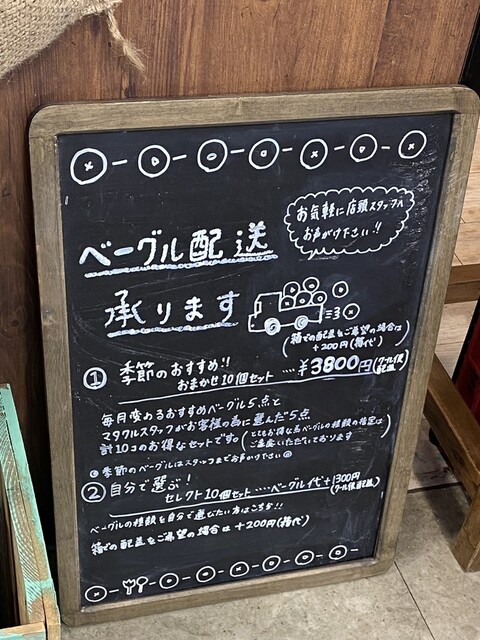 お気軽に店頭スタッフへ
お声がけ下さい!!
ベーグル配送
承ります
(箱での配送をご希望の場合は
+200円(箱代))
① 季節のおすすめ!!
おまかせ10個セット ・・・・ ¥3800円(クール便配送)
毎月変わるおすすめベーグル5点と
マタクルスタッフがお客様の為に選んだ5点
計10コのお得なセットです。(とてもお得な為ベーグルの種類の指定は
ご遠慮いただいております)
季節のベーグルはスタッフまでお声かけ下さい
② 自分で選ぶ!
セレクト10個セット ・・・・ベーグル代+1300円
(クール便配送)
ベーグルの種類を自分で選びたい方はこちら!!
箱での配送をご希望の場合は+200円(箱代)